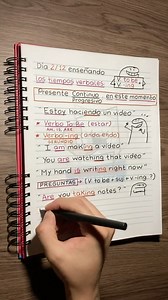 Día 2/12 enseñando
los tiempos verbales
V to be + V ing
Presente Continuo Progresivo en este momento
"Estoy haciendo un video"
• Verbo To Be (estar)
AM, IS, ARE
• Verbo-ing (ando, endo)
GERUNDIO
"I am making a video"
"You are watching that video"
"My hand is writing right now"
PREGUNTAS → (V to be + Suj + V-ing ?)
"Are you taking notes?"